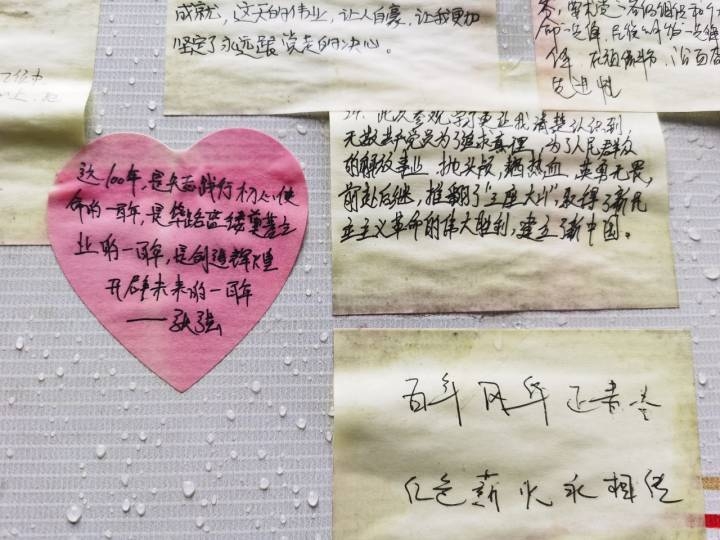 成就，这天的伟业，让人自豪，让我更加
坚定了永远跟党走的决心。
先进性
这100年，是矢志践行初心使
命的一百年，是筚路蓝缕奠基立
业的一百年，是创造辉煌
开辟未来的一百年
此次参观学习更让我清楚认识到
无数共产党员为了追求真理，为了人民群众
的解放事业，抛头颅，洒热血，英勇无畏，
前赴后继，推翻了“三座大山”，取得了新民
主主义革命的伟大胜利，建立了新中国。
百年风华正青春
红色薪火永相传